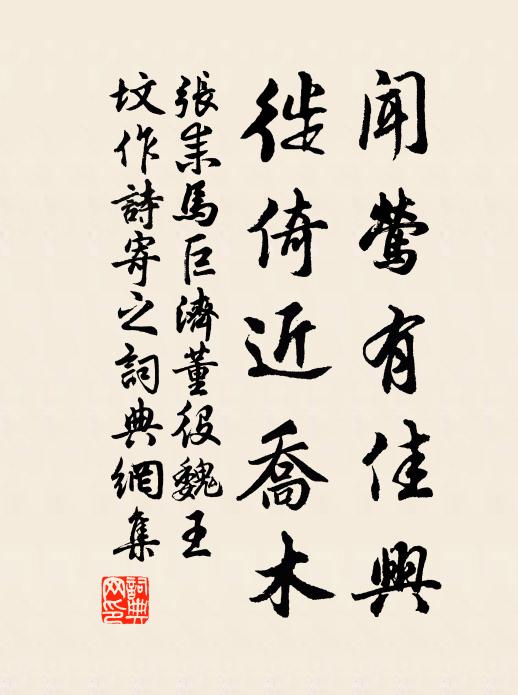 聞鶯有佳興
徙倚近喬木
張耒馬巨濟董役魏王
坟作詩寄之詞典網集
詞典網印